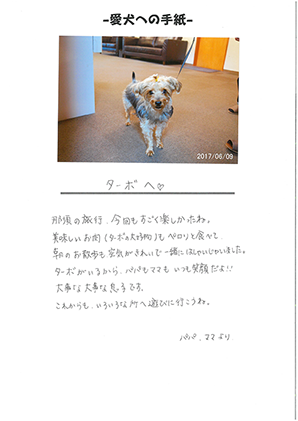 -愛犬への手紙-
2017/06/09
ターボへ♡
那須の旅行、今回もすごく楽しかったね。
美味しいお肉(ターボの大好物)もペロリと食べて
朝のお散歩も空気がきれいで一緒にはしゃいじゃいました。
ターボがいるから、パパもママもいつも笑顔だよ!!
大事な大事な息子です。
これからも、いろいろな所へ遊びに行こうね。
パパ、ママより